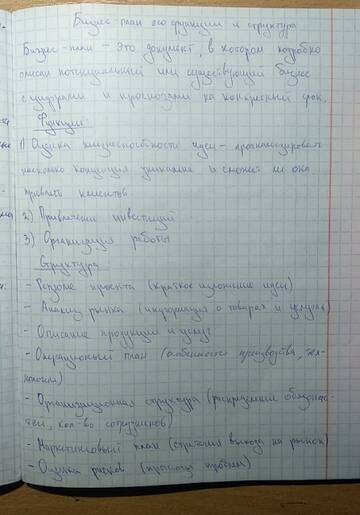 Бизнес-план его функции и структура
Бизнес-план – это документ, в котором подробно
описан потенциальный или существующий бизнес
с цифрами и прогнозами на конкретный срок.
Функции:
1) Оценка жизнеспособности идеи – проанализировать
насколько концепция уникальна и сможет ли она
привлечь клиентов
2) Привлечение инвестиций
3) Организация работы
Структура
- Резюме проекта (краткое изложение идеи)
- Анализ рынка (информация о товарах и услугах)
- Описание продукции и услуг
- Операционный план (особенности производства, тех-
нологии)
- Организационная структура (распределение обязаннос-
тей, кол-во сотрудников)
- Маркетинговый план (стратегия выхода на рынок)
- Оценка рисков